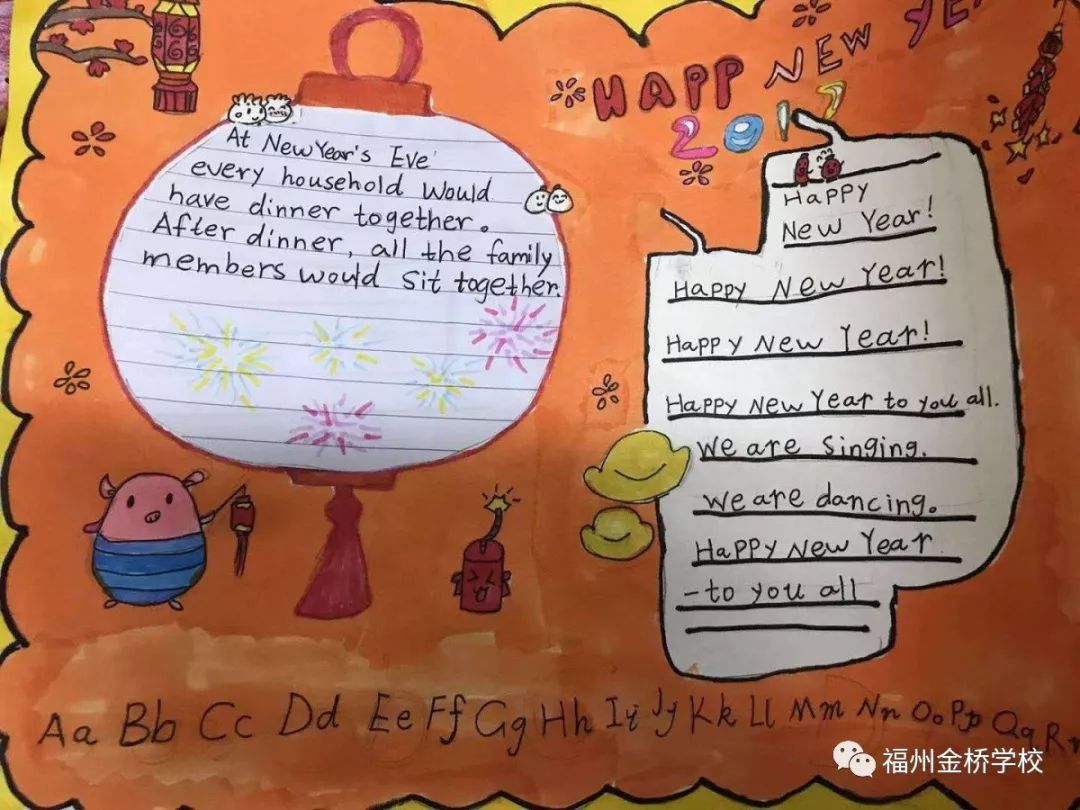 HAPP NEW YE
2017
At New Year's Eve
every household would
have dinner together。
After dinner, all the family
members would sit together.
Happy
New Year!
Happy New Year!
Happy New Year!
Happy New Year to you all.
We are singing.
We are dancing。
Happy New Year
-to you all
Aa Bb Cc Dd Ee Ff Gg Hh Ii Jj Kk Ll Mm Nn Oo Pp Qq R
福州金桥学校